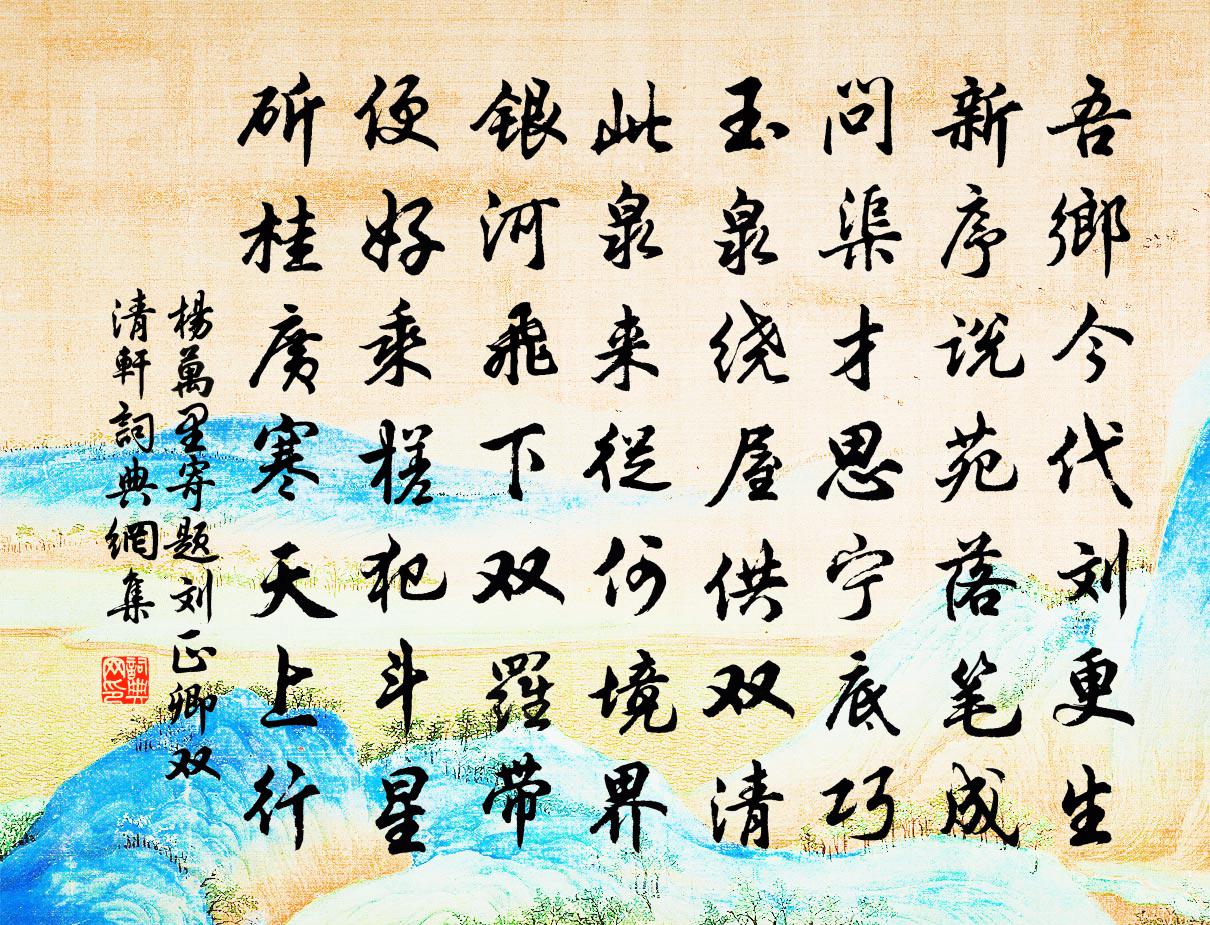 吾鄉今代刘更生
新序说苑落笔成
问渠才思宁底巧
玉泉绕屋供双清
此泉来從何境界
银河飛下双羅带
便好乘槎犯斗星
斫桂廣寒天上行
楊萬里寄题刘正卿双
清軒詞典網集
詞典
网印